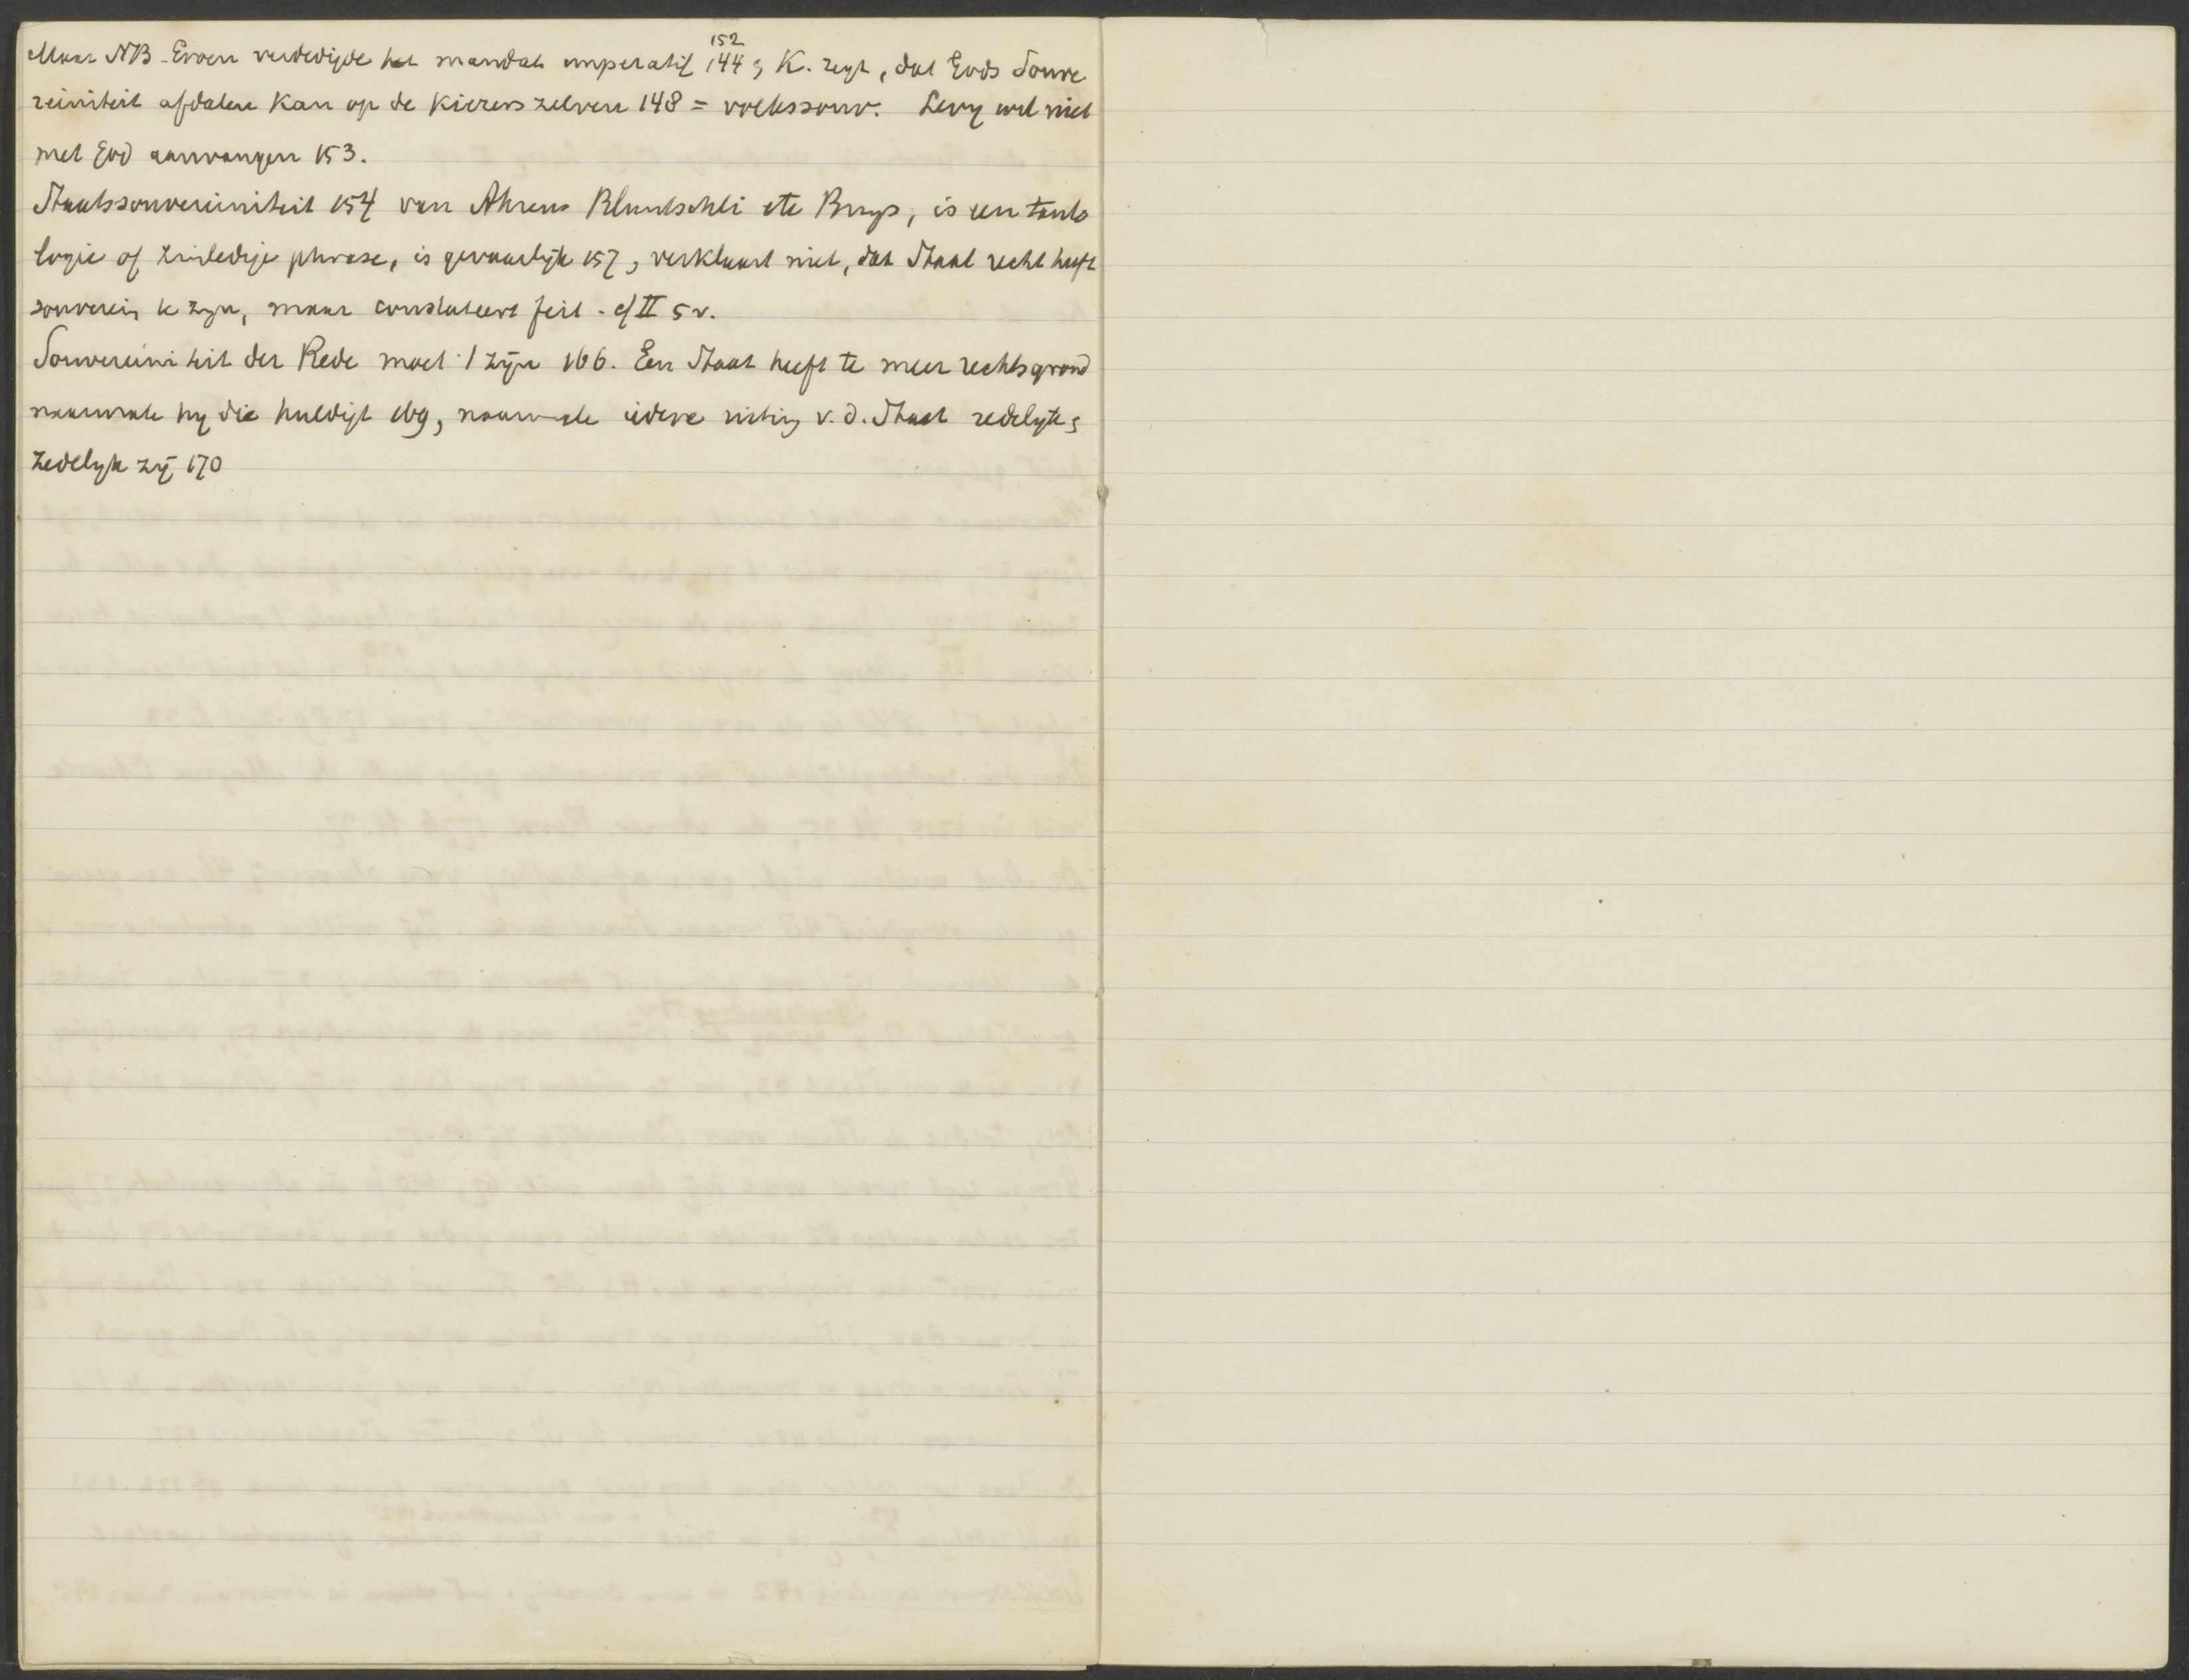 152
Maar NB. Groen verdedigde het mandat imperatif 144 & K. zegt, dat Gods Souve
reiniteit afdalen kan op de kiezers zelven 148 = volkssouv. Levy wil niet
met God aanvangen 153.
Staatssouvereiniteit 154 van Ahrens Bluntschli etc Buys, is een tauto
logie of zinledige phrase, is gevaarlijk 157, verklaart niet, dat Staat recht heeft
souverein te zyn, maar constateert feit. cf II 5v.
Souvereiniteit der Rede moet 't zijn 166. Een Staat heeft te meer rechtsgrond
naarmate hy die huldigt 169, naarmate iedere v. d. Staat redelyk &
zedelyk zij 170